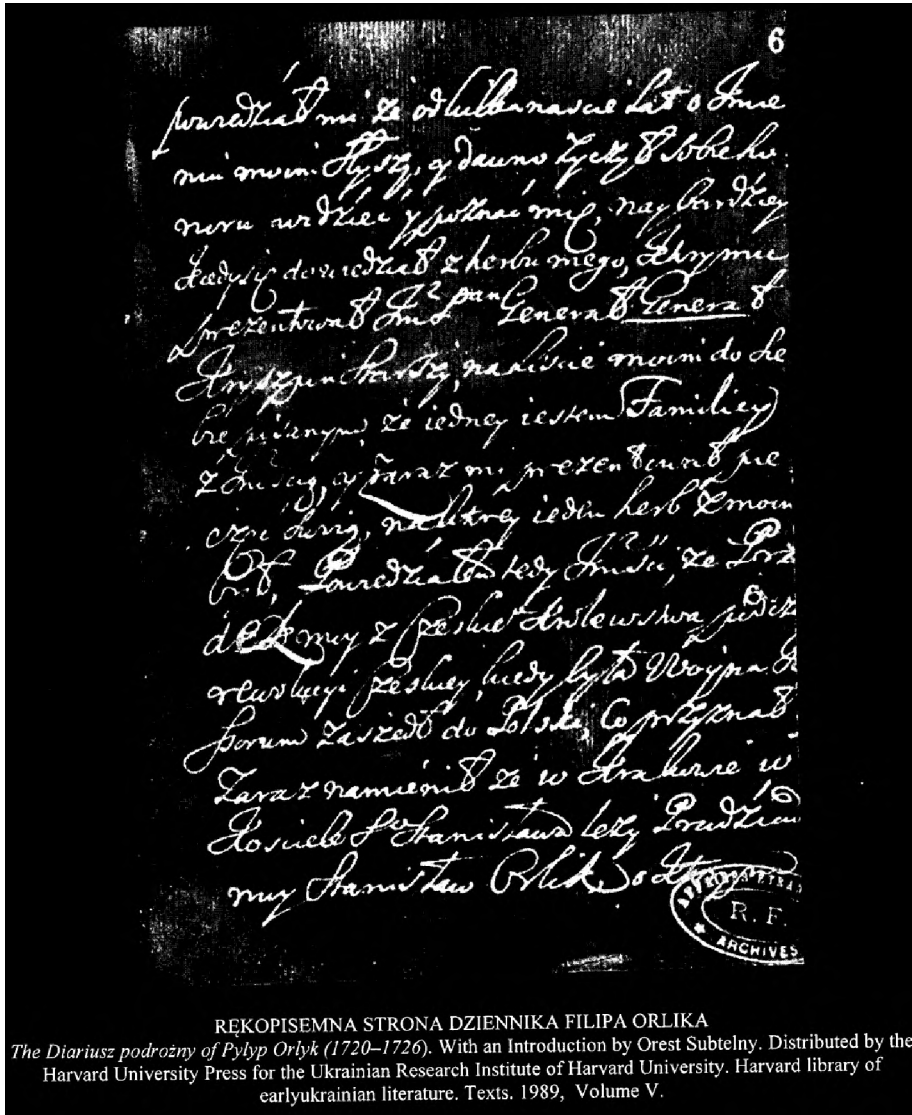 6
powiedział mi że od kilkanaście lat o Imie
niu moim słyszy, y dawno życzył sobie ho
noru widzieć y poznać mię, naybardziey
kiedy się dowiedział z herbu mego, który mu
prezentował Jmść pan Generał Generał
na liście moim do sie
bie pisanym, że iedney iestem Familiey
z Jmścią, y zaraz mi prezentował pie
częć swoią, na ktorey ieden herb z moim
był, Powiedziałem tedy Jmści, że
z Czeskiego Królewstwa
rewolucyi Czeskiey, kiedy była Woyna
zaszedł do Polski, Co przyznał
Zaraz namienił że w Krakowie w
Kościele S° Stanisława leży Pradziad
muy Stanisław Orlik, o
R. F.
ARCHIVES
RĘKOPISEMNA STRONA DZIENNIKA FILIPA ORLIKA
The Diariusz podrożny of Pylyp Orlyk (1720–1726). With an Introduction by Orest Subtelny. Distributed by the
Harvard University Press for the Ukrainian Research Institute of Harvard University. Harvard library of
earlyukrainian literature. Texts. 1989, Volume V.